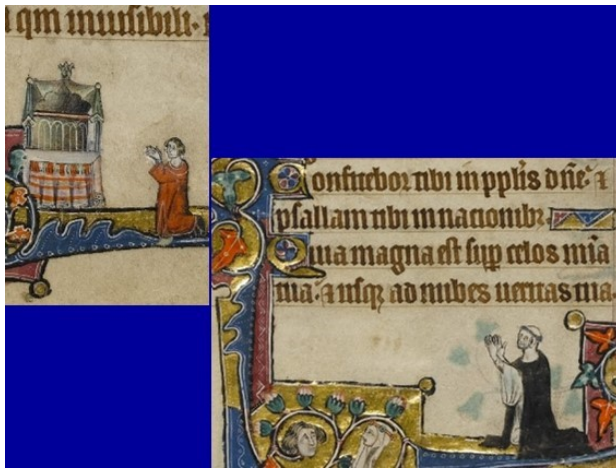 qm inuisibili·
Confitebor tibi in pplis dne: ⁊
psallam tibi in nacionibꝫ
Quia magna est sup celos mīa
tua: ⁊ usq ad nubes ueritas tua.